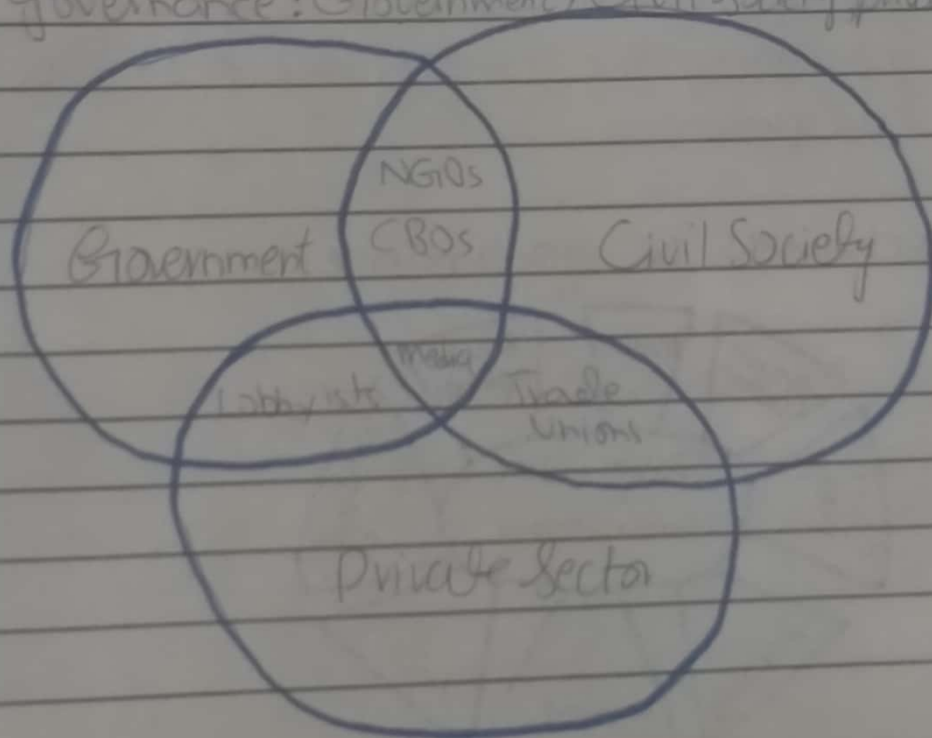 governance: Government, Civil Society,
NGOs
CBOs
Government
Civil Society
Media
Lobbyists
Trade
Unions
Private Sector